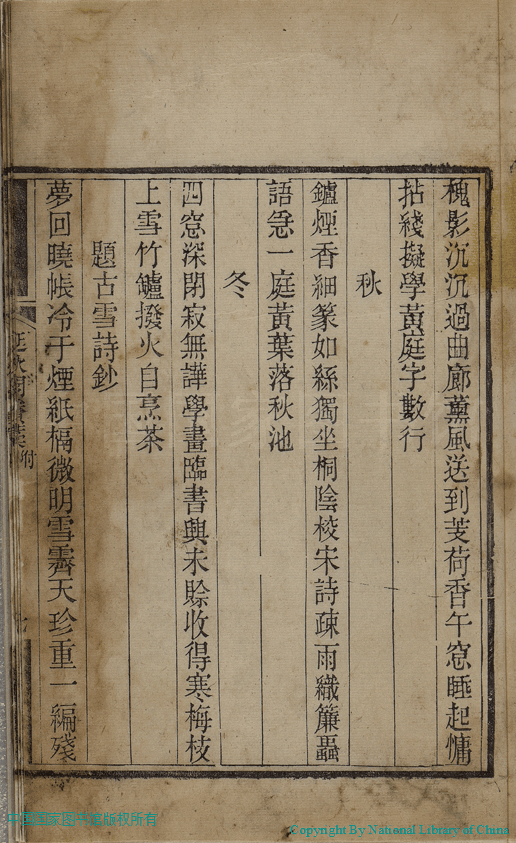 槐影沉沉過曲廊薰風送到芰荷香午窓睡起慵
拈綫擬學黃庭字數行
秋
鑪煙香細篆如絲獨坐桐陰校宋詩疎雨織簾蟲
語急一庭黃葉落秋池
冬
四窓深閉寂無譁學畫臨書興未賒收得寒梅枝
上雪竹鑪撥火自烹茶
題古雪詩鈔
夢回曉帳冷于煙紙槅微明雪霽天珍重一編殘
附
中国国家图书馆版权所有
Copyright By National Library of China